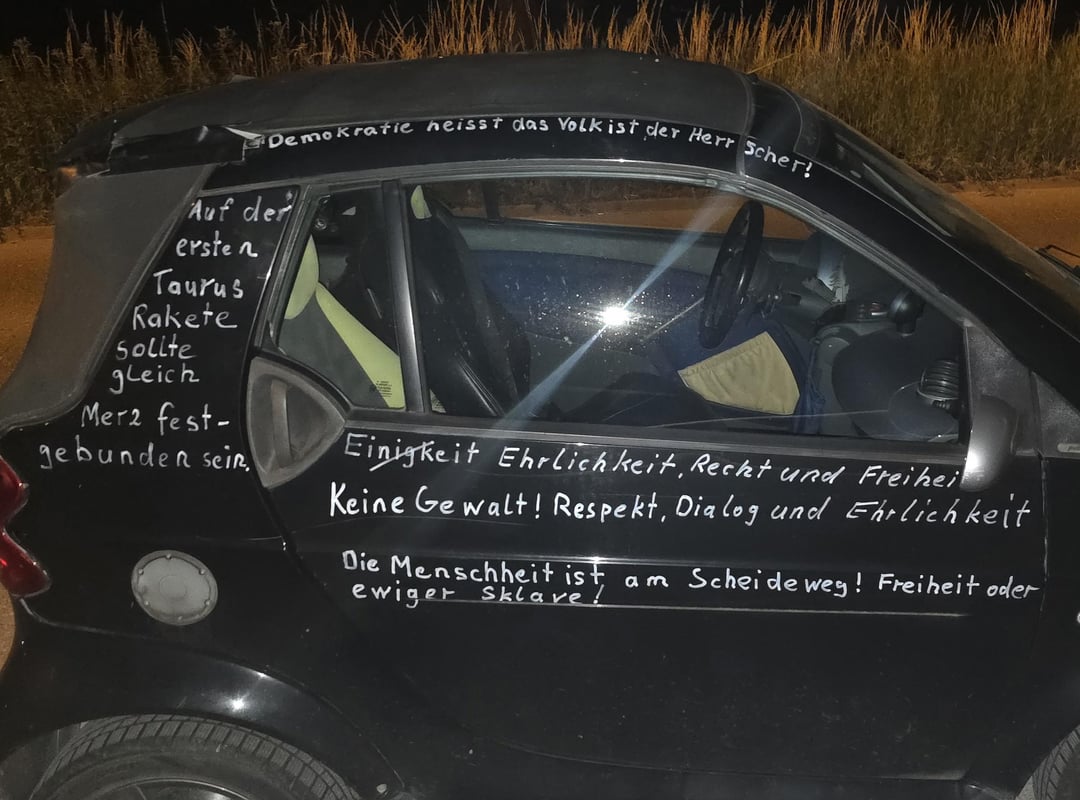 Demokratie heisst das Volk ist der Herr scher!
Auf der
ersten
Taurus
Rakete
sollte
gleich
Merz fest-
gebunden sein.
Einigkeit Ehrlichkeit, Recht und Freiheit
Keine Gewalt! Respekt, Dialog und Ehrlichkeit
Die Menschheit ist am Scheideweg! Freiheit oder
ewiger Sklave!